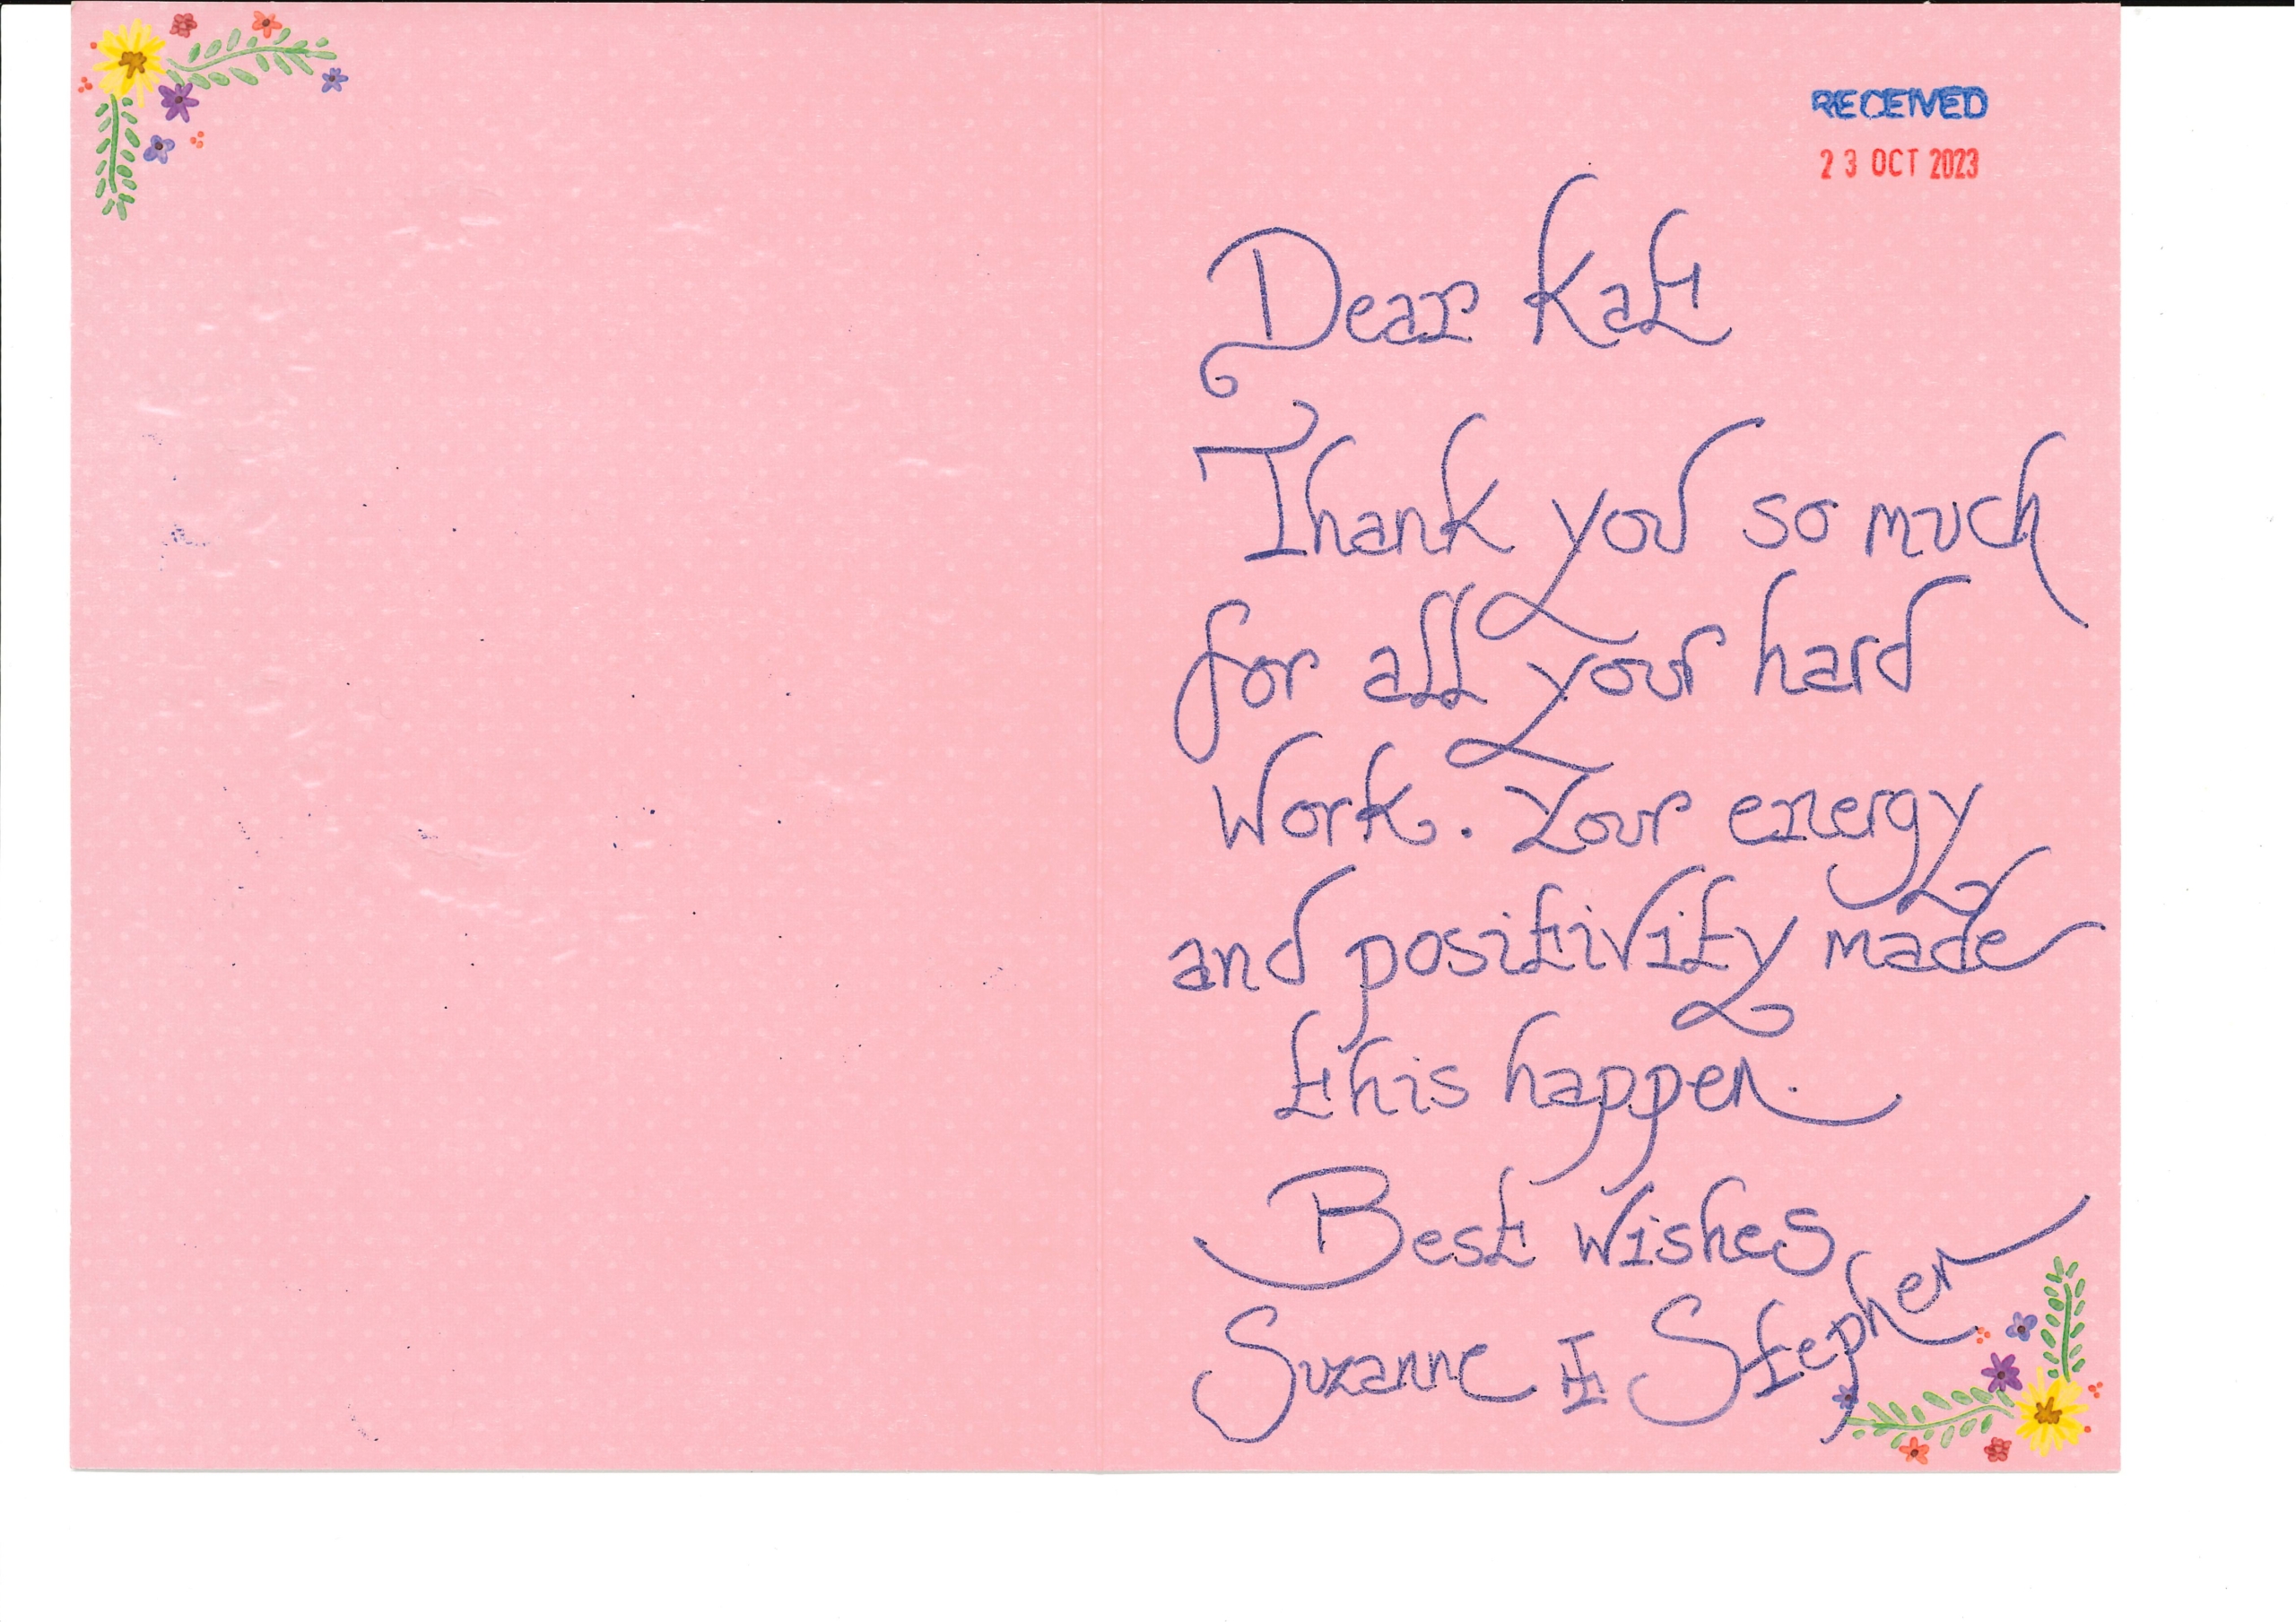 RECEIVED
23 OCT 2023
Dear Kat
Thank you so much
for all your hard
Work. Your energy
and positivity made
this happen.
Best Wishes
Suzanne & Stephen